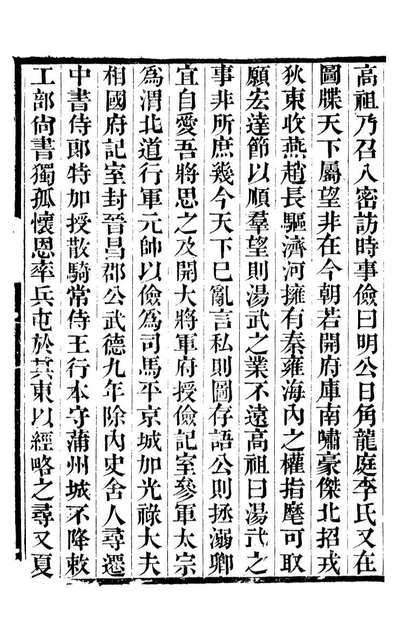 高祖乃召入密訪時事儉曰明公日角龍庭李氏又在
圖牒天下屬望非在今朝若開府庫南嘯豪傑北招戎
狄東收燕趙長驅濟河擁有秦雍海內之權指麾可取
願宏達節以順羣望則湯武之業不遠高祖曰湯武之
事非所庶幾今天下巳亂言私則圖存語公則拯溺卿
宜自愛吾將思之及開大將軍府授儉記室參軍太宗
為渭北道行軍元帥以儉為司馬平京城加光祿大夫
相國府記室封晉昌郡公武德九年除內史舍人尋遷
中書侍郎特加授散騎常侍王行本守蒲州城不降敕
工部尙書獨孤懷恩率兵屯於其東以經略之尋又夏